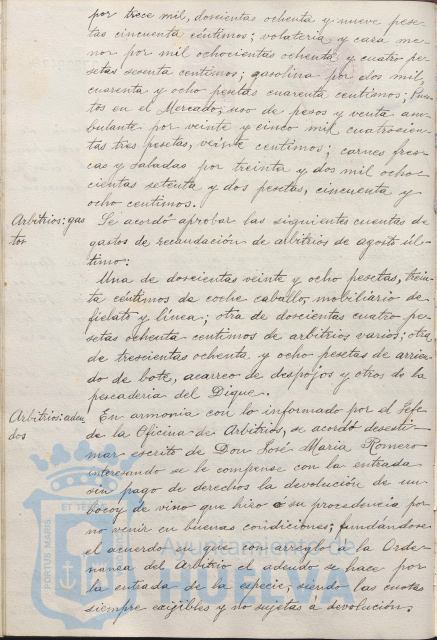 por trece mil, doscientas ochenta y nueve pese-
tas cincuenta céntimos; volatería y caza me-
nor por mil ochocientas ochenta y cuatro pe-
setas sesenta céntimos; gasolina por dos mil
cuarenta y ocho pesetas cuarenta céntimos; Pues-
tos en el Mercado, uso de pesos y venta am-
bulante por veinte y cinco mil cuatrocien-
tas tres pesetas, veinte céntimos; carnes fres-
cas y saladas por treinta y dos mil ocho-
cientas setenta y dos pesetas, cincuenta y
ocho céntimos.
Arbitrios: gas
tos
Se acordó aprobar las siguientes cuentas de
gastos de recaudación de arbitrios de agosto úl-
timo:
Una de doscientas veinte y ocho pesetas, trein-
ta céntimos de coche caballo, mobiliario de
fielato y línea; otra de doscientas cuatro pe-
setas ochenta céntimos de arbitrios varios; otra
de trescientas ochenta y ocho pesetas de arrien-
do de bote, acarreo de despojos y otros de la
pescadería del Dique.
Arbitrios: adeu
dos
En armonía con lo informado por el Jefe
de la Oficina de Arbitrios, se acordó desesti-
mar escrito de Don José María Romero
interesando se le compense con la entrada
sin pago de derechos la devolución de un
bocoy de vino que hizo a su procedencia por
no venir en buenas condiciones; fundándose
el acuerdo en que con arreglo a la Orde-
nanza del Arbitrio el adeudo se hace por
la entrada de la especie, siendo las cuotas
siempre exigibles y no sujetas a devolución.
PORTUS MARIS
ET TE
Ayuntamiento de
HUELVA